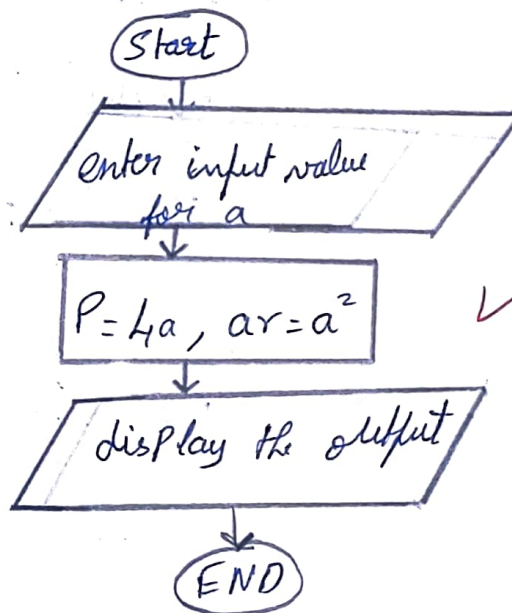 Start
enter input value
for a
P=4a, ar=a²
disPlay the output
END